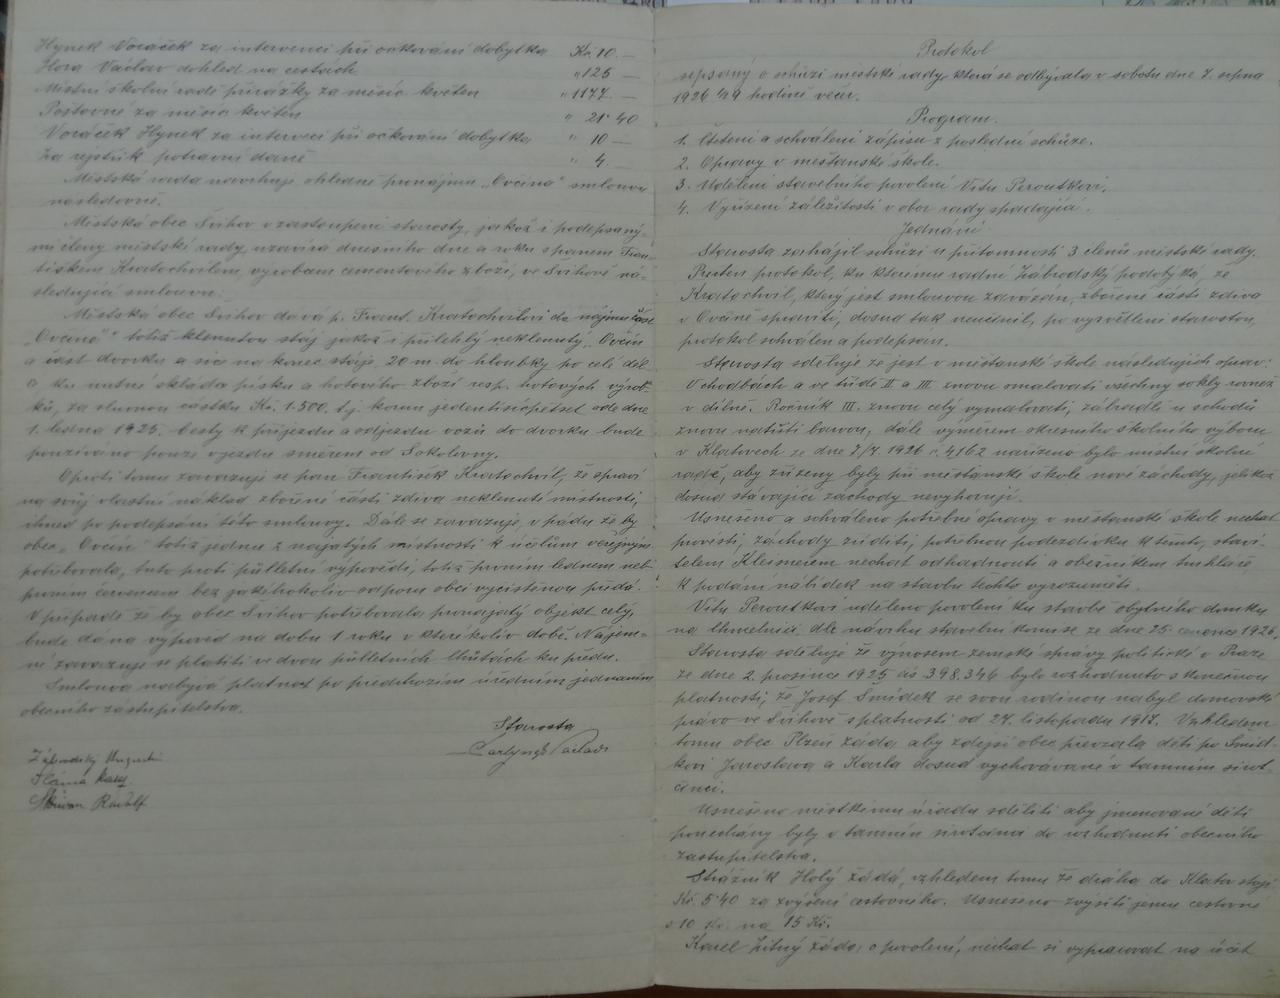 Hynek Voráček za intervenci při očkování dobytka Kč 10.—
Hora Václav dohled na cestách " 125 —
Místní školní radě přirážky za měsíc květen " 1177 —
Poštovné za měsíc květen " 21·40
Voráček Hynek za interveci při očkování dobytka " 10 —
Za rejstřík potravní daně " 4.
Městská rada navrhuje, ohledně pronájmu „Ovčína" smlouvu
následovní.
Městská obec Švihov v zastoupení starosty, jakož i podepsaný-
mi členy městské rady, uzavírá dnešního dne a roku s panem Fran-
tiškem Kratochvílem, výrobcem cementového zboží, ve Švihově ná-
sledující smlouvu:
Městská obec Švihov dává p. Frant. Kratochvílovi do nájmu část
„Ovčína" totiž klenutou stáj jakož i přilehlý neklenutý „Ovčín
a část dvorku a sice na konec stáje 20 m do hloubky po celé dél-
ku nutné skládá písku a hotového zboží resp. hotových výrob-
ků, za sluvnou částku Kč. 1·500, t.j. korun jedentisícpětset ode dne
1. ledna 1925. Cesty k příjezdu a odjezdu vozů do dvorku bude
používáno pouze vjezdu směrem od Sokolovny.
Oproti tomu zavazuje se pan František Kratochvíl, že spraví
na svůj vlastní náklad zbořené části zdiva neklenuté místnosti,
ihned po podepsání této smlouvy. Dále se zavazuje, v pádu že by
obec „Ovčín" totiž jednu z najatých místností k účelům veřejným
potřebovala, tuto proti půlletní výpovědi, totiž prvním lednem neb
prvním červencem bez jakéhokoliv odporu obci vyčistěnou předá.
V případě že by obec Švihov potřebovala pronajatý objekt celý,
bude dána výpověd na dobu 1 roku v kterékoliv době. Nájem-
né zavazuje se platiti ve dvou půlletních lhůtách ku předu.
Smlouva nabývá platnost po předchozím úředním jednáním
obecního zástupitelstva.
Starosta
Zábrodský Augustin
Rudolf
Protokol
sepsaný o schůzi městské rady, která se odbývala v sobotu dne 7. srpna
1926 ½9 hodině večer.
Program.
1. Čtení a schválení zápisu z poslední schůze.
2. Opravy v měšťanské škole.
3. Udělení stavebního povolení Vítu Peroutkovi.
4. Vyřízení záležitostí v obor rady spadající.
Jednání
Starosta zahájil schůzi u přítomnosti 3 členů městské rady.
Přečten protokol, ku kterému radní Zábrodský podotýká, že
Kratochvíl, který jest smlouvou zavázán, zbořené části zdiva
v Ovčíně spraviti, dosud tak neučinil, po vysvětlení starostou,
protokol schválen a podepsán.
Starosta sděluje že jest v měšťanské škole následujících oprav:
V chodbách a ve třídě II a III. znovu omalovati všechny sokly rovněž
v dílně. Ročník III. znovu celý vymalovati, zábradlí u schodů
znovu natříti barvou, dále výměrem okresního školního výboru
v Klatovech ze dne 7/7. 1926 č. 4162 nařízeno bylo místní školní
radě, aby zřízeny byly při měšťanské škole nové záchody, jelikož
dosud stávající záchody nevyhovují.
Usneseno a schváleno potřebné opravy v měšťanské škole nechat
provésti, záchody zříditi, potřebnou podezdívku k těmto, stavi-
telem Kleisnerem nechat odhadnouti a oběžníkem truhláře
k podání nabídek na stavbu těchto vyrozuměti.
Vítu Peroutkovi uděleno povolení ku stavbě obytného domku
na Chmelnici dle návrhu stavební komise ze dne 25. července 1926.
Starosta sděluje že výnosem zemské správy politické v Praze
ze dne 2. prosince 1925 čís 398.346 bylo rozhodnuto s konečnou
platností, že Josef Šmídek se svou rodinou nabyl domovské
právo ve Švihově s platností od 27. listopadu 1917. Vzhledem
tomu obec Plzeň žádá aby zdejší obec převzala děti po Šmíd-
kovi Jaroslava a Karla dosud vychovávané v tamním sirot-
činci.
Usneseno městskému úřadu sděliti aby jmenované děti
ponechány byly v tamním sirotčinci do rozhodnutí obecního
zastupitelstva.
Strážník Holý žádá, vzhledem tomu že dráha do Klatov stojí
Kč. 5·40 za zvýšení cestovného. Usneseno zvýšiti jemu cestovné
s 10 Kč. na 15 Kč.
Karel Žitný žádá o povolení, nechat si vypracovat na účet